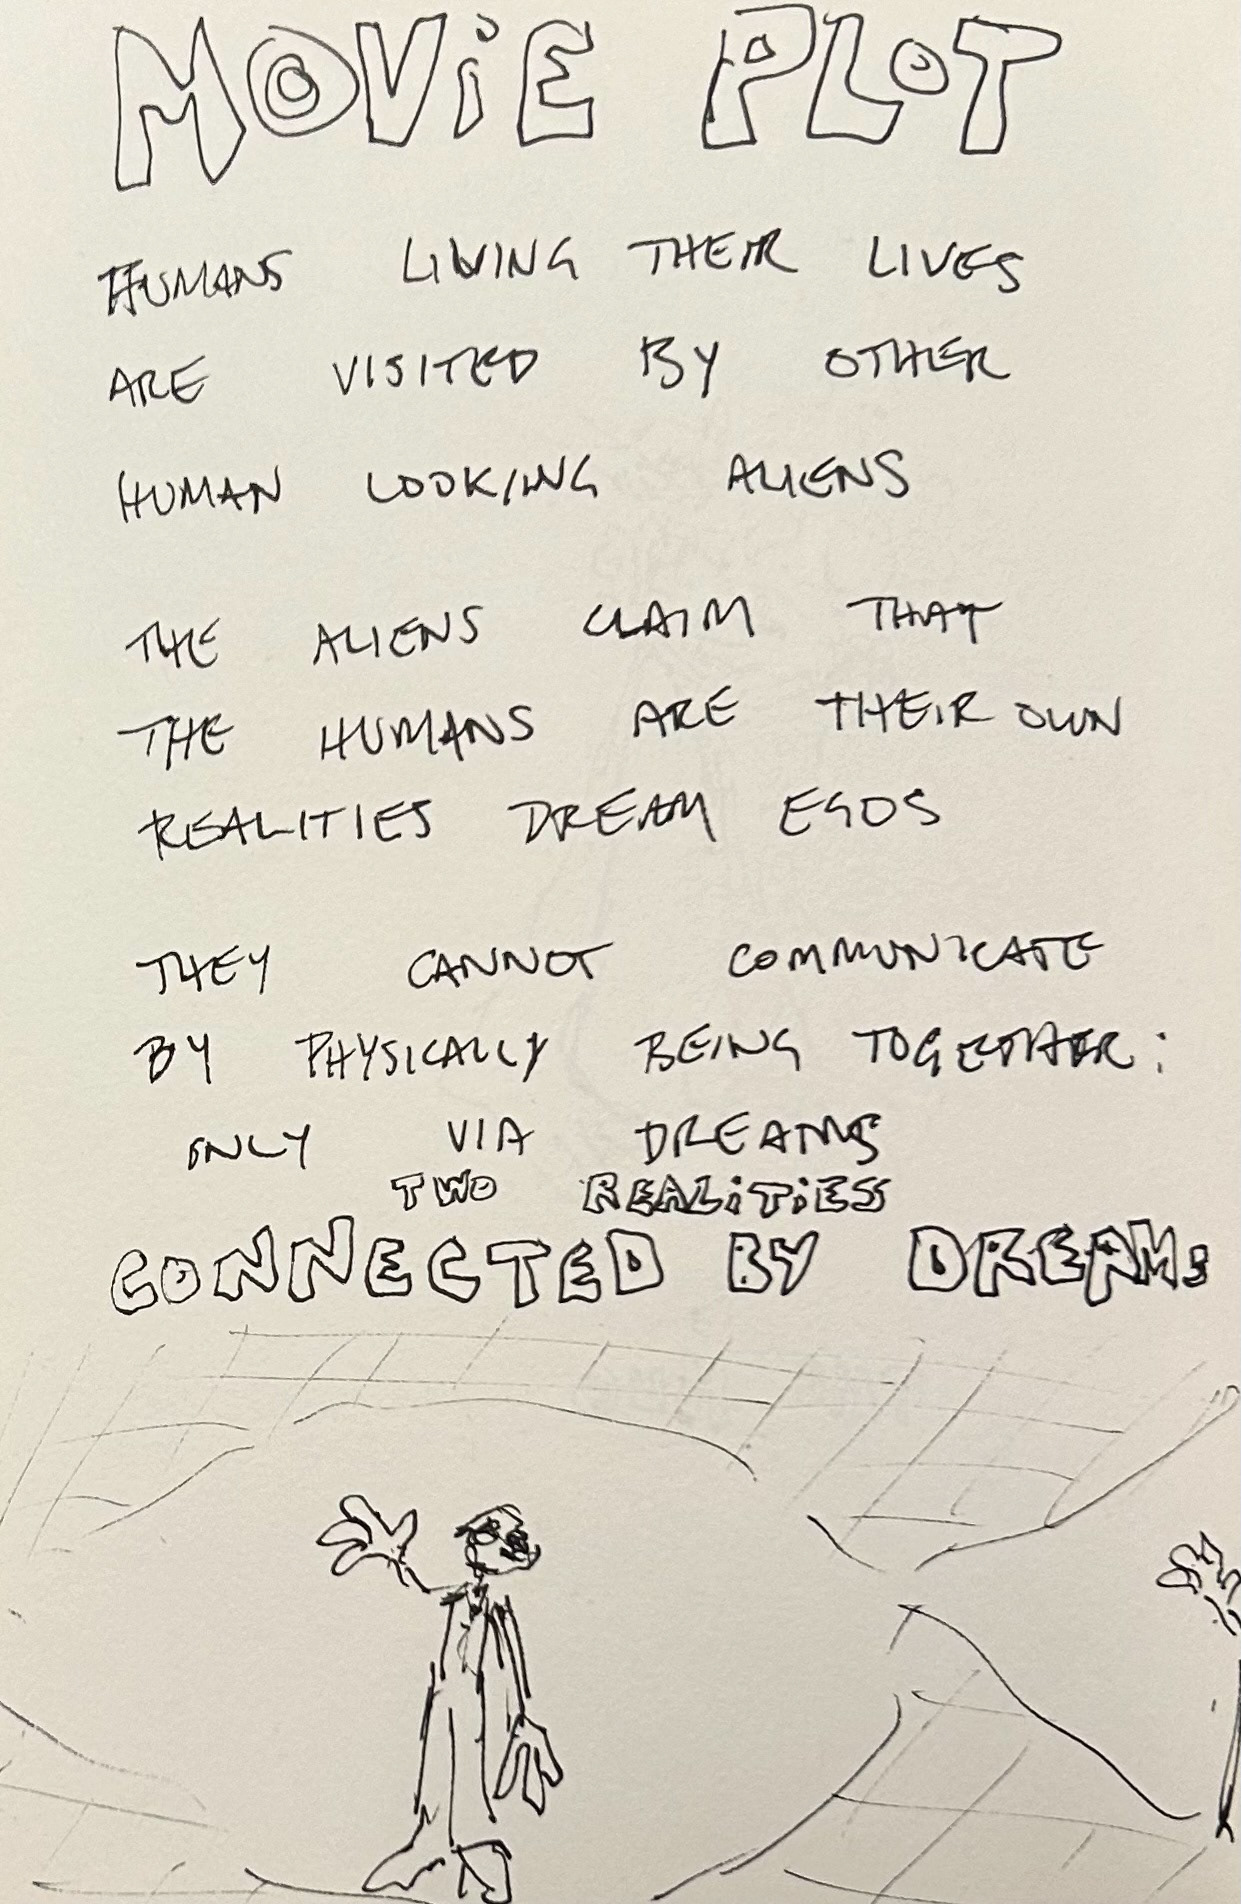 MOViE PLOT
HUMANS LIVING THEIR LIVES
ARE VISITED BY OTHER
HUMAN LOOKING ALIENS
THE ALIENS CLAIM THAT
THE HUMANS ARE THEIR OWN
REALITIES DREAM EGOS
THEY CANNOT COMMUNICATE
BY PHYSICALLY BEING TOGETHER:
ONLY VIA DREAMS
TWO REALiTiES
CONNECTED BY DREAMS